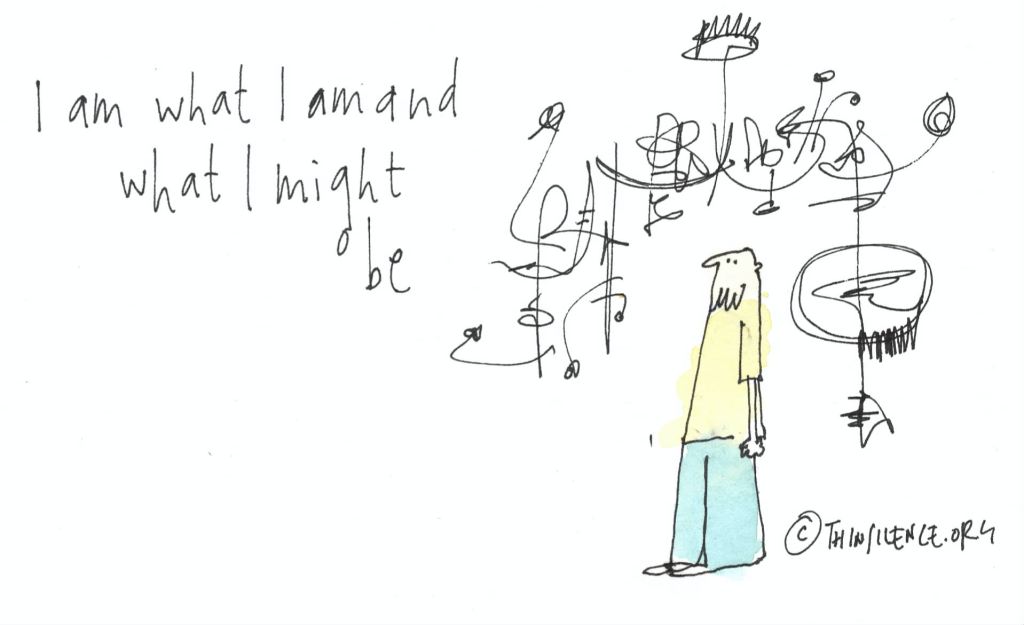 I am what I am and
what I might
be
© THINSILENCE.ORG